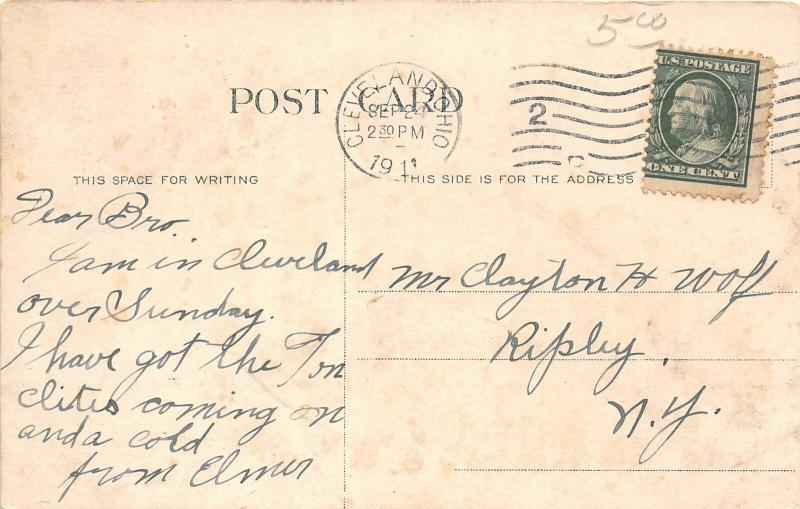 5 00
U.S. POSTAGE
ONE CENT
POST CARD
CLEVELAND, OHIO
SEP 24
2 30 PM
1911
2
C
THIS SPACE FOR WRITING
THIS SIDE IS FOR THE ADDRESS
Dear Bro.
I am in Cleveland
over Sunday.
I have got the Ton
clites coming on
and a cold
from Elmer
Mr Clayton H Wolf
Ripley,
N.Y.